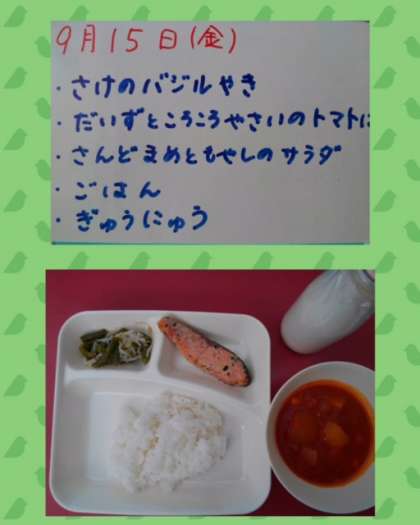 9月15日(金)
・さけのバジルやき
・だいずところころやさいのトマトに
・さんどまめともやしのサラダ
・ごはん
・ぎゅうにゅう